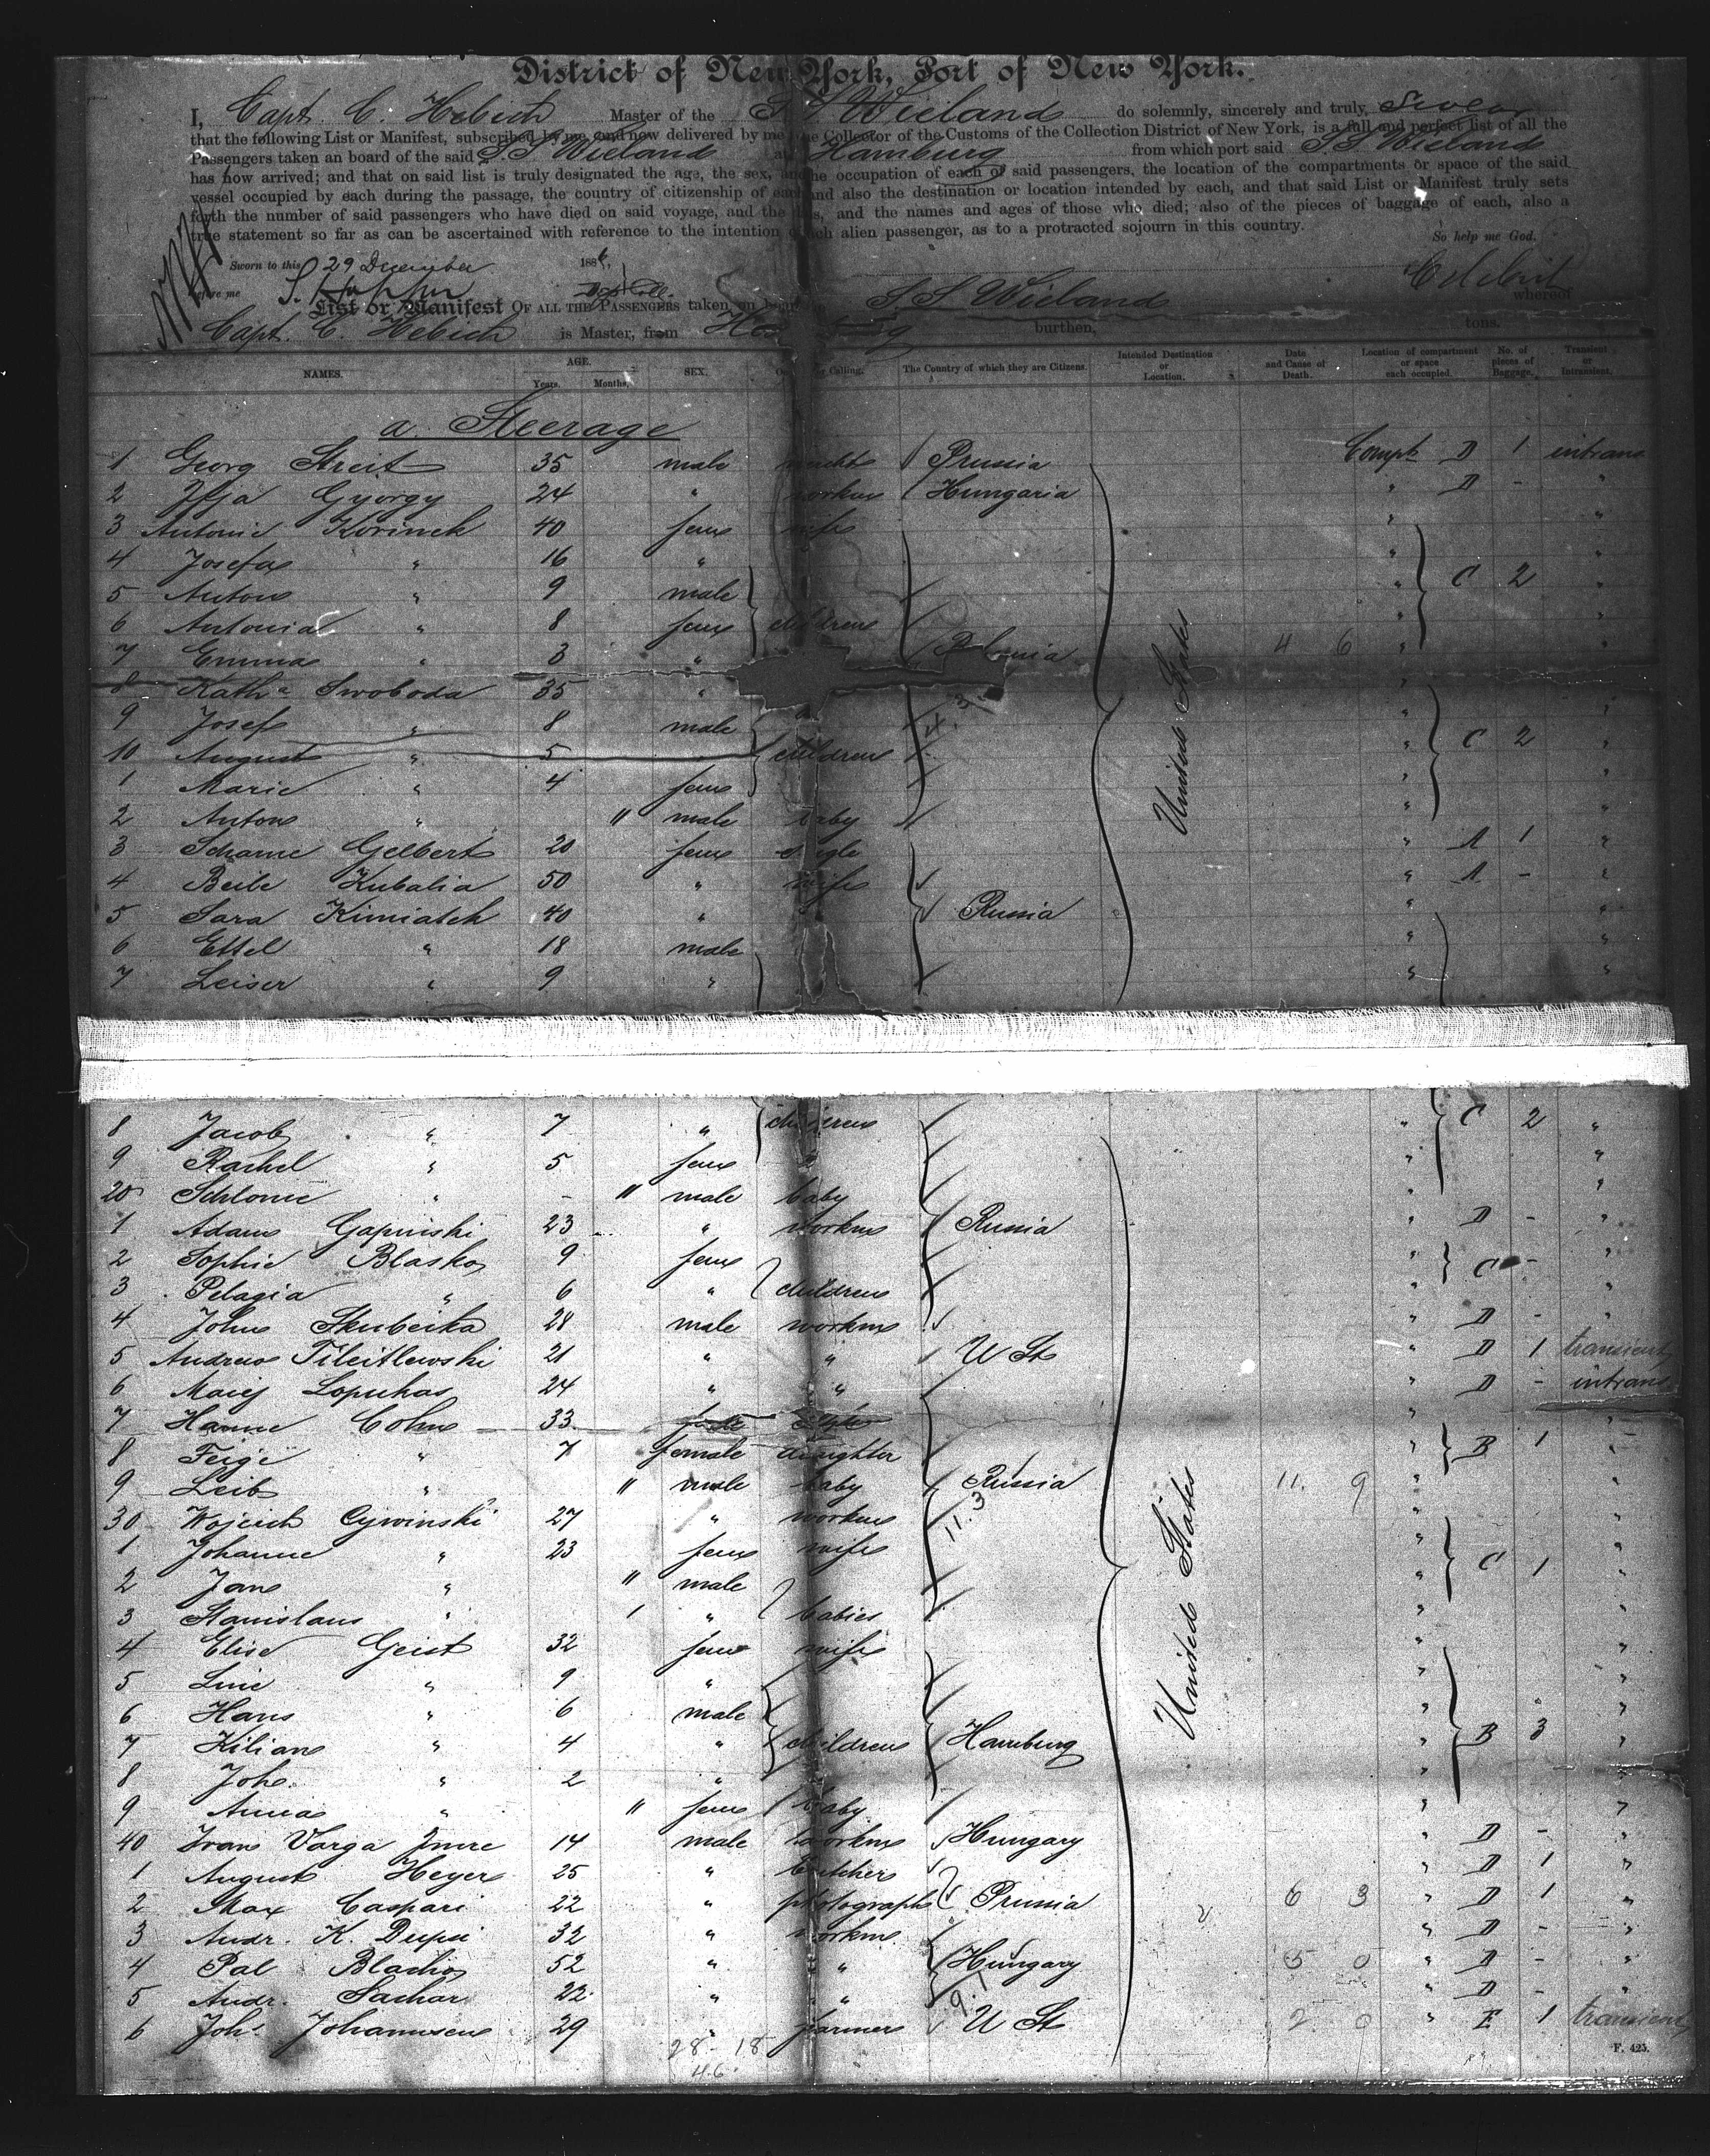 District of New York, Port of New York.
I, Capt. C. Hebich Master of the S S Wieland do solemnly, sincerely and truly, swear
that the following List or Manifest, subscribed by me, and now delivered by me the Collector of the Customs of the Collection District of New York, is a full and perfect list of all the
Passengers taken an board of the said S. S. Wieland at Hamburg from which port said S S Wieland
has now arrived; and that on said list is truly designated the age, the sex, and the occupation of each of said passengers, the location of the compartments or space of the said
vessel occupied by each during the passage, the country of citizenship of each and also the destination or location intended by each, and that said List or Manifest truly sets
forth the number of said passengers who have died on said voyage, and the and the names and ages of those who died; also of the pieces of baggage of each, also a
true statement so far as can be ascertained with reference to the intention of each alien passenger, as to a protracted sojourn in this country.
So help me God.
Sworn to this 29 December 1886,
before me
C Hebich
List or Manifest OF ALL THE PASSENGERS taken on board S. S. Wieland whereof
Capt. C. Hebich is Master, from Hamburg burthen, tons.
NAMES. AGE. Years. Months. SEX. Calling. The Country of which they are Citizens. Intended Destination or Location. Date and Cause of Death. Location of compartment or space each occupied. No. of pieces of Baggage. Transient or Intransient.
a. Steerage
1 Georg Streit 35 male Prussia Compt D 1 intrans
2 Ilja György 24 " workm Hungaria " D - "
3 Antonie Korinek 40 fem wife " "
4 Josefa " 16 " " "
5 Anton " 9 male " C 2 "
6 Antonia " 8 fem children " "
7 Emma " 3 " 4 6 " "
8 Kath a Swoboda 35 " " "
9 Josef " 8 male " "
10 August " 5 children " C 2 "
1 Marie " 4 fem " "
2 Anton " 11 male baby " "
3 Schame Gelbert 20 fem single " A 1 "
4 Beile Kubalia 50 " wife " A - "
5 Sara Kimiatek 40 " Russia " "
6 Ettel " 18 male " "
7 Leiser " 9 " " "
United States
8 Jacob " 7 " children " C 2 "
9 Rachel " 5 fem " "
20 Schlome " - 11 male baby " "
1 Adam Gapinski 23 " workm Russia " D - "
2 Sophie Blasko 9 fem " C - "
3 Pelagia " 6 " children " "
4 John Skubeika 28 male workm " D - "
5 Andrew Tileitlewski 21 " " U St " D 1 transient
6 Maciej Lopuhas 24 " " " D - intrans
7 Hanne Cohn 33 " "
8 Feige " 7 female daughter " B 1 "
9 Leib " 11 male baby Russia 11. 9 " "
30 Wojcich Cywinski 27 " workm 11.3 " "
1 Johanne " 23 fem wife " C 1 "
2 Jan " 11 male " "
3 Stanislaus " 1 " babies " "
4 Elise Geist 32 fem wife " "
5 Line " 9 " " "
6 Hans " 6 male " "
7 Kilian " 4 " children Hamburg " B 3 "
8 Joh. " 2 " " "
9 Anna " 11 fem baby " "
40 Ivan Varga Imre 14 male workm Hungary " D - "
1 August Heyer 25 " butcher " D 1 "
2 Max Caspari 22 " photograph Prussia 6 3 " D 1 "
3 Andr. K. Dupsi 32 " workm " D - "
4 Pal Blacho 52 " " Hungary 5 0 " D - "
5 Andr. Sachar 22 " " 9.1 " D - "
6 Joh. Johannsen 29 " farmer U St 2 0 " E 1 transient
United States
28 - 18
46
F. 425.